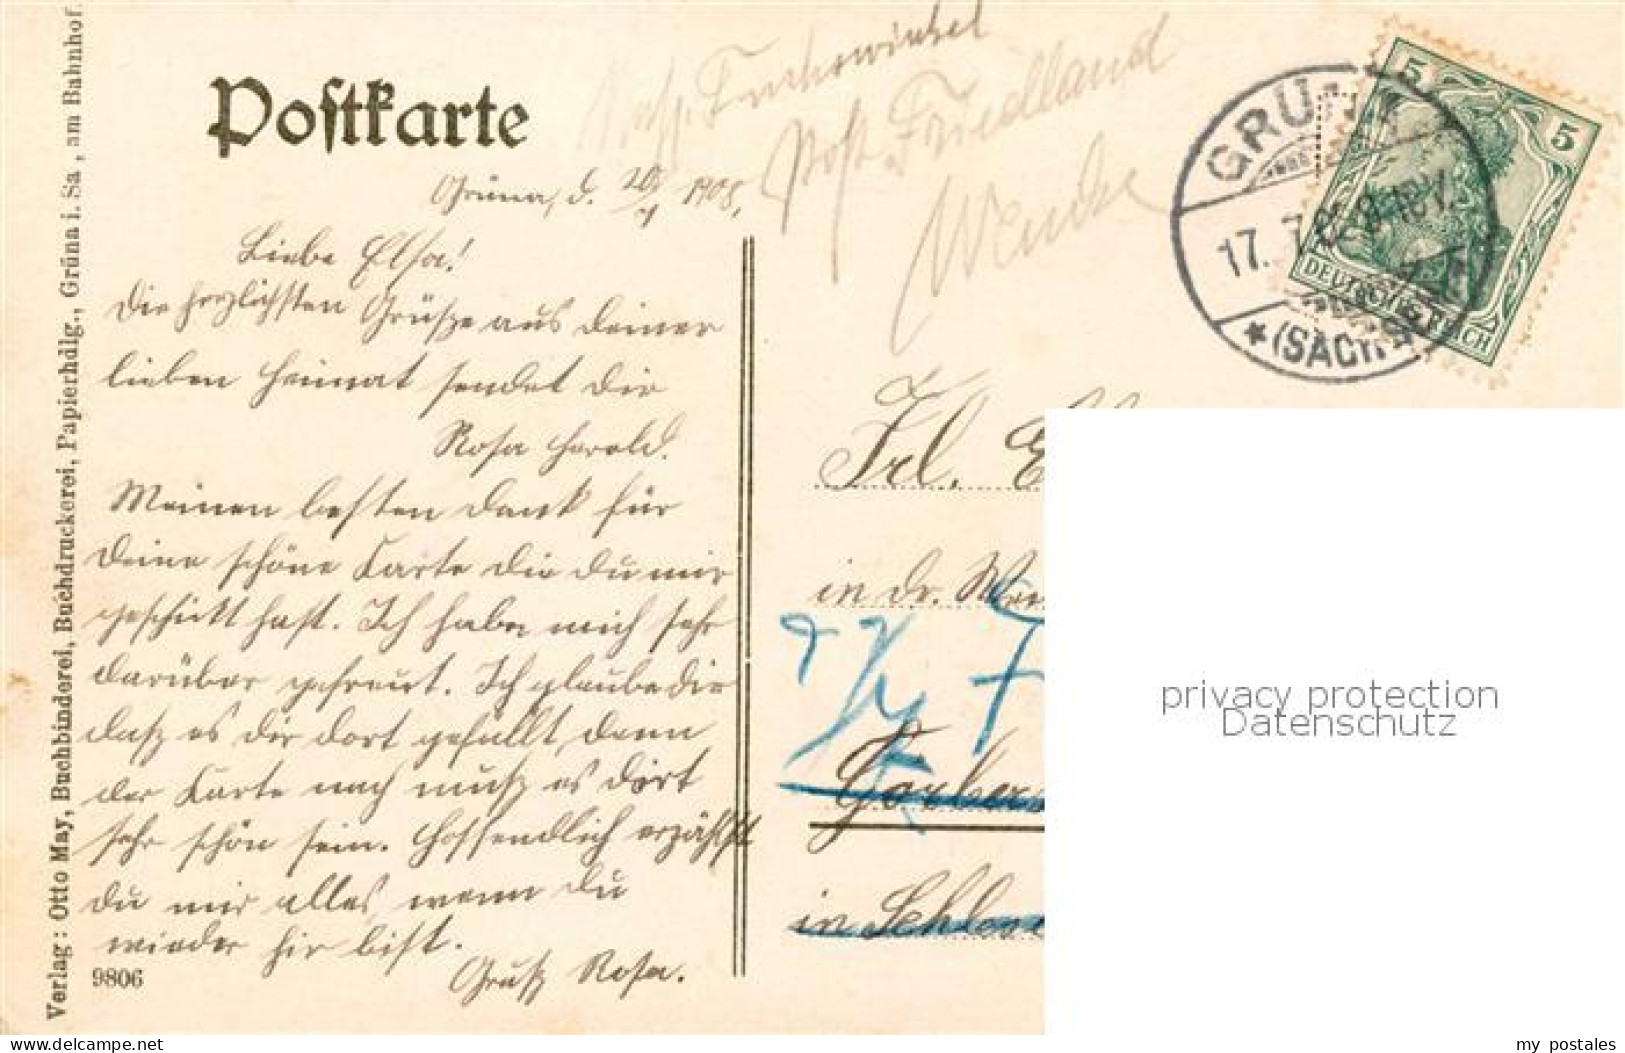 Postkarte
Post Friedland
Grüna, d. 1908,
Liebe Elsa!
Die herzlichsten Grüße aus deiner
lieben Heimat sendet Dir
Rosa Herold.
Meinen besten Dank für
Deine schöne Karte die Du mir
geschickt hast. Ich habe mich sehr
darüber gefreut. Ich glaube dir
daß es dir dort gefällt, denn
der Karte nach muß es dort
sehr schön sein. Hoffendlich erzählst
Du mir alles wenn Du
wieder hir bist.
Gruß Rosa.
9806
Verlag: Otto May, Buchbinderei, Buchdruckerei, Papierhdlg., Grüna i. Sa., am Bahnhof.
GRÜNA
17. 7. 08. 8-10V.
* (SACHSEN)
5
5
DEUTSCHES REICH
Frl.
in
in Schles
privacy protection
Datenschutz
www.delcampe.net
my_postales